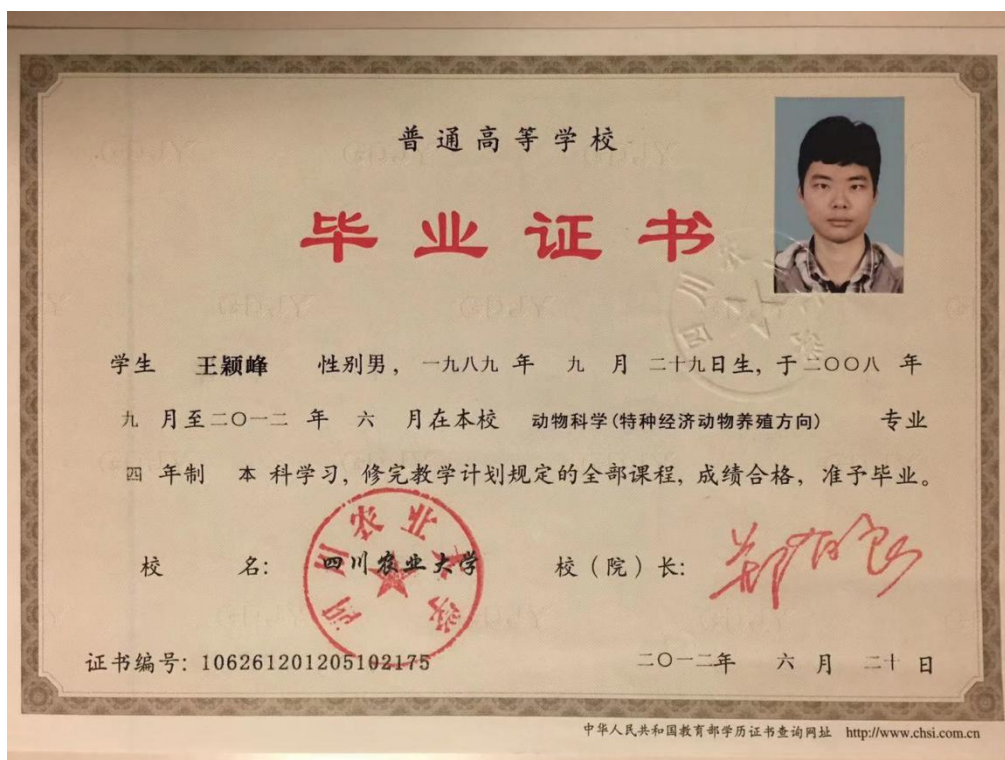 普通高等学校
毕业证书
学生 王颖峰 性别男，一九八九 年 九 月 二十九日生，于二〇〇八 年
九 月至二〇一二 年 六 月在本校 动物科学(特种经济动物养殖方向) 专业
四 年制 本 科学习，修完教学计划规定的全部课程，成绩合格，准予毕业。
校 名： 四川农业大学 校（院）长：
四川农业大学
证书编号：106261201205102175 二〇一二年 六 月 二十 日
中华人民共和国教育部学历证书查询网址 http://www.chsi.com.cn